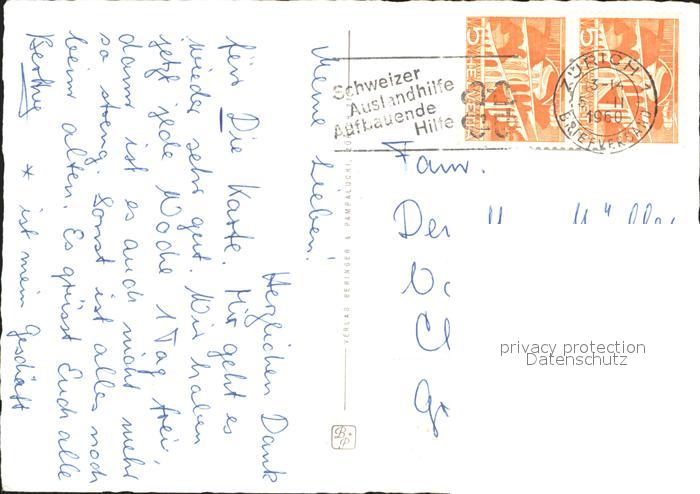 Meine Lieben!
Herzlichen Dank
für Die Karte. Mir geht es
wieder sehr gut. Wir haben
jetzt jede Woche 1 Tag frei,
dann ist es auch nicht mehr
so streng. Sonst ist alles noch
beim alten. Es grüsst Euch alle
* ist mein Geschäft
VERLAG BERINGER & PAMPALUCHI
Schweizer
Auslandhilfe
Aufbauende
Hilfe
ZÜRICH 1
1960
BRIEFVERSAND
HELVETIA
5
HELVETIA
5
Fam.
privacy protection
Datenschutz
B&P